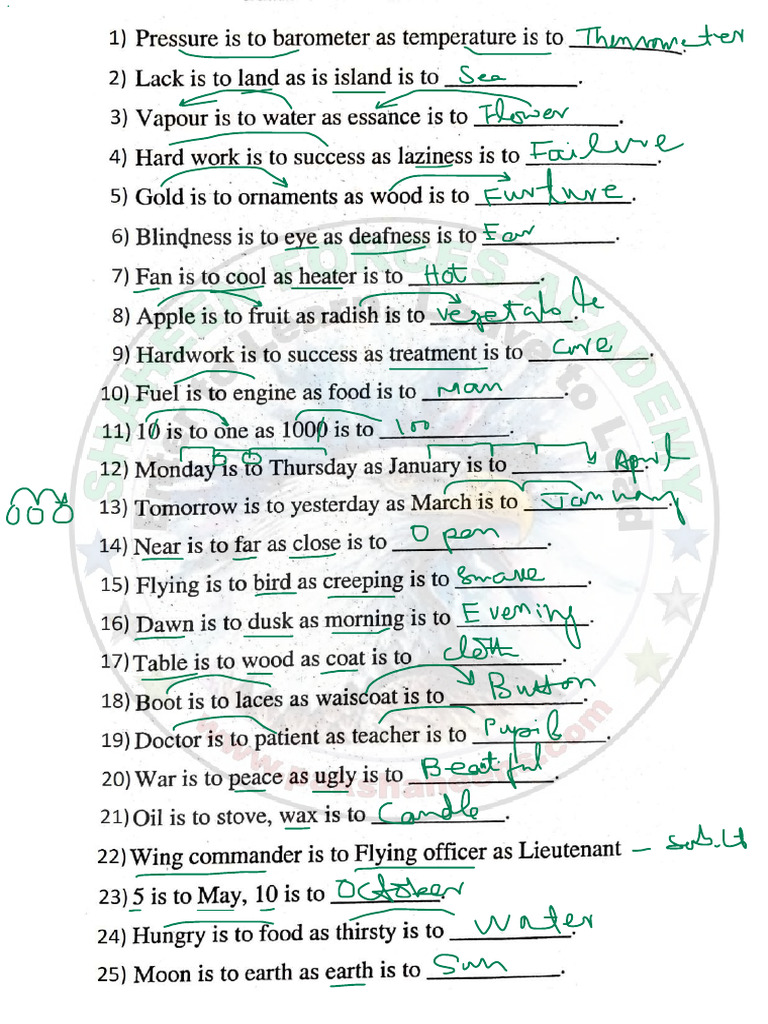 1) Pressure is to barometer as temperature is to Thermometer
2) Lack is to land as is island is to Sea.
3) Vapour is to water as essance is to Flower.
4) Hard work is to success as laziness is to Failure.
5) Gold is to ornaments as wood is to Furture.
6) Blindness is to eye as deafness is to Ear.
7) Fan is to cool as heater is to Hot.
8) Apple is to fruit as radish is to vegetable.
9) Hardwork is to success as treatment is to Cure.
10) Fuel is to engine as food is to Man.
11) 10 is to one as 1000 is to 100.
12) Monday is to Thursday as January is to April.
13) Tomorrow is to yesterday as March is to January.
14) Near is to far as close is to Open.
15) Flying is to bird as creeping is to Snake.
16) Dawn is to dusk as morning is to Evening.
17) Table is to wood as coat is to cloth.
18) Boot is to laces as waiscoat is to Button.
19) Doctor is to patient as teacher is to Pupil.
20) War is to peace as ugly is to Beatiful.
21) Oil is to stove, wax is to Candle.
22) Wing commander is to Flying officer as Lieutenant – Sub.Lt
23) 5 is to May, 10 is to October.
24) Hungry is to food as thirsty is to Water.
25) Moon is to earth as earth is to Sun.
SHAHEEN FORCES ACADEMY